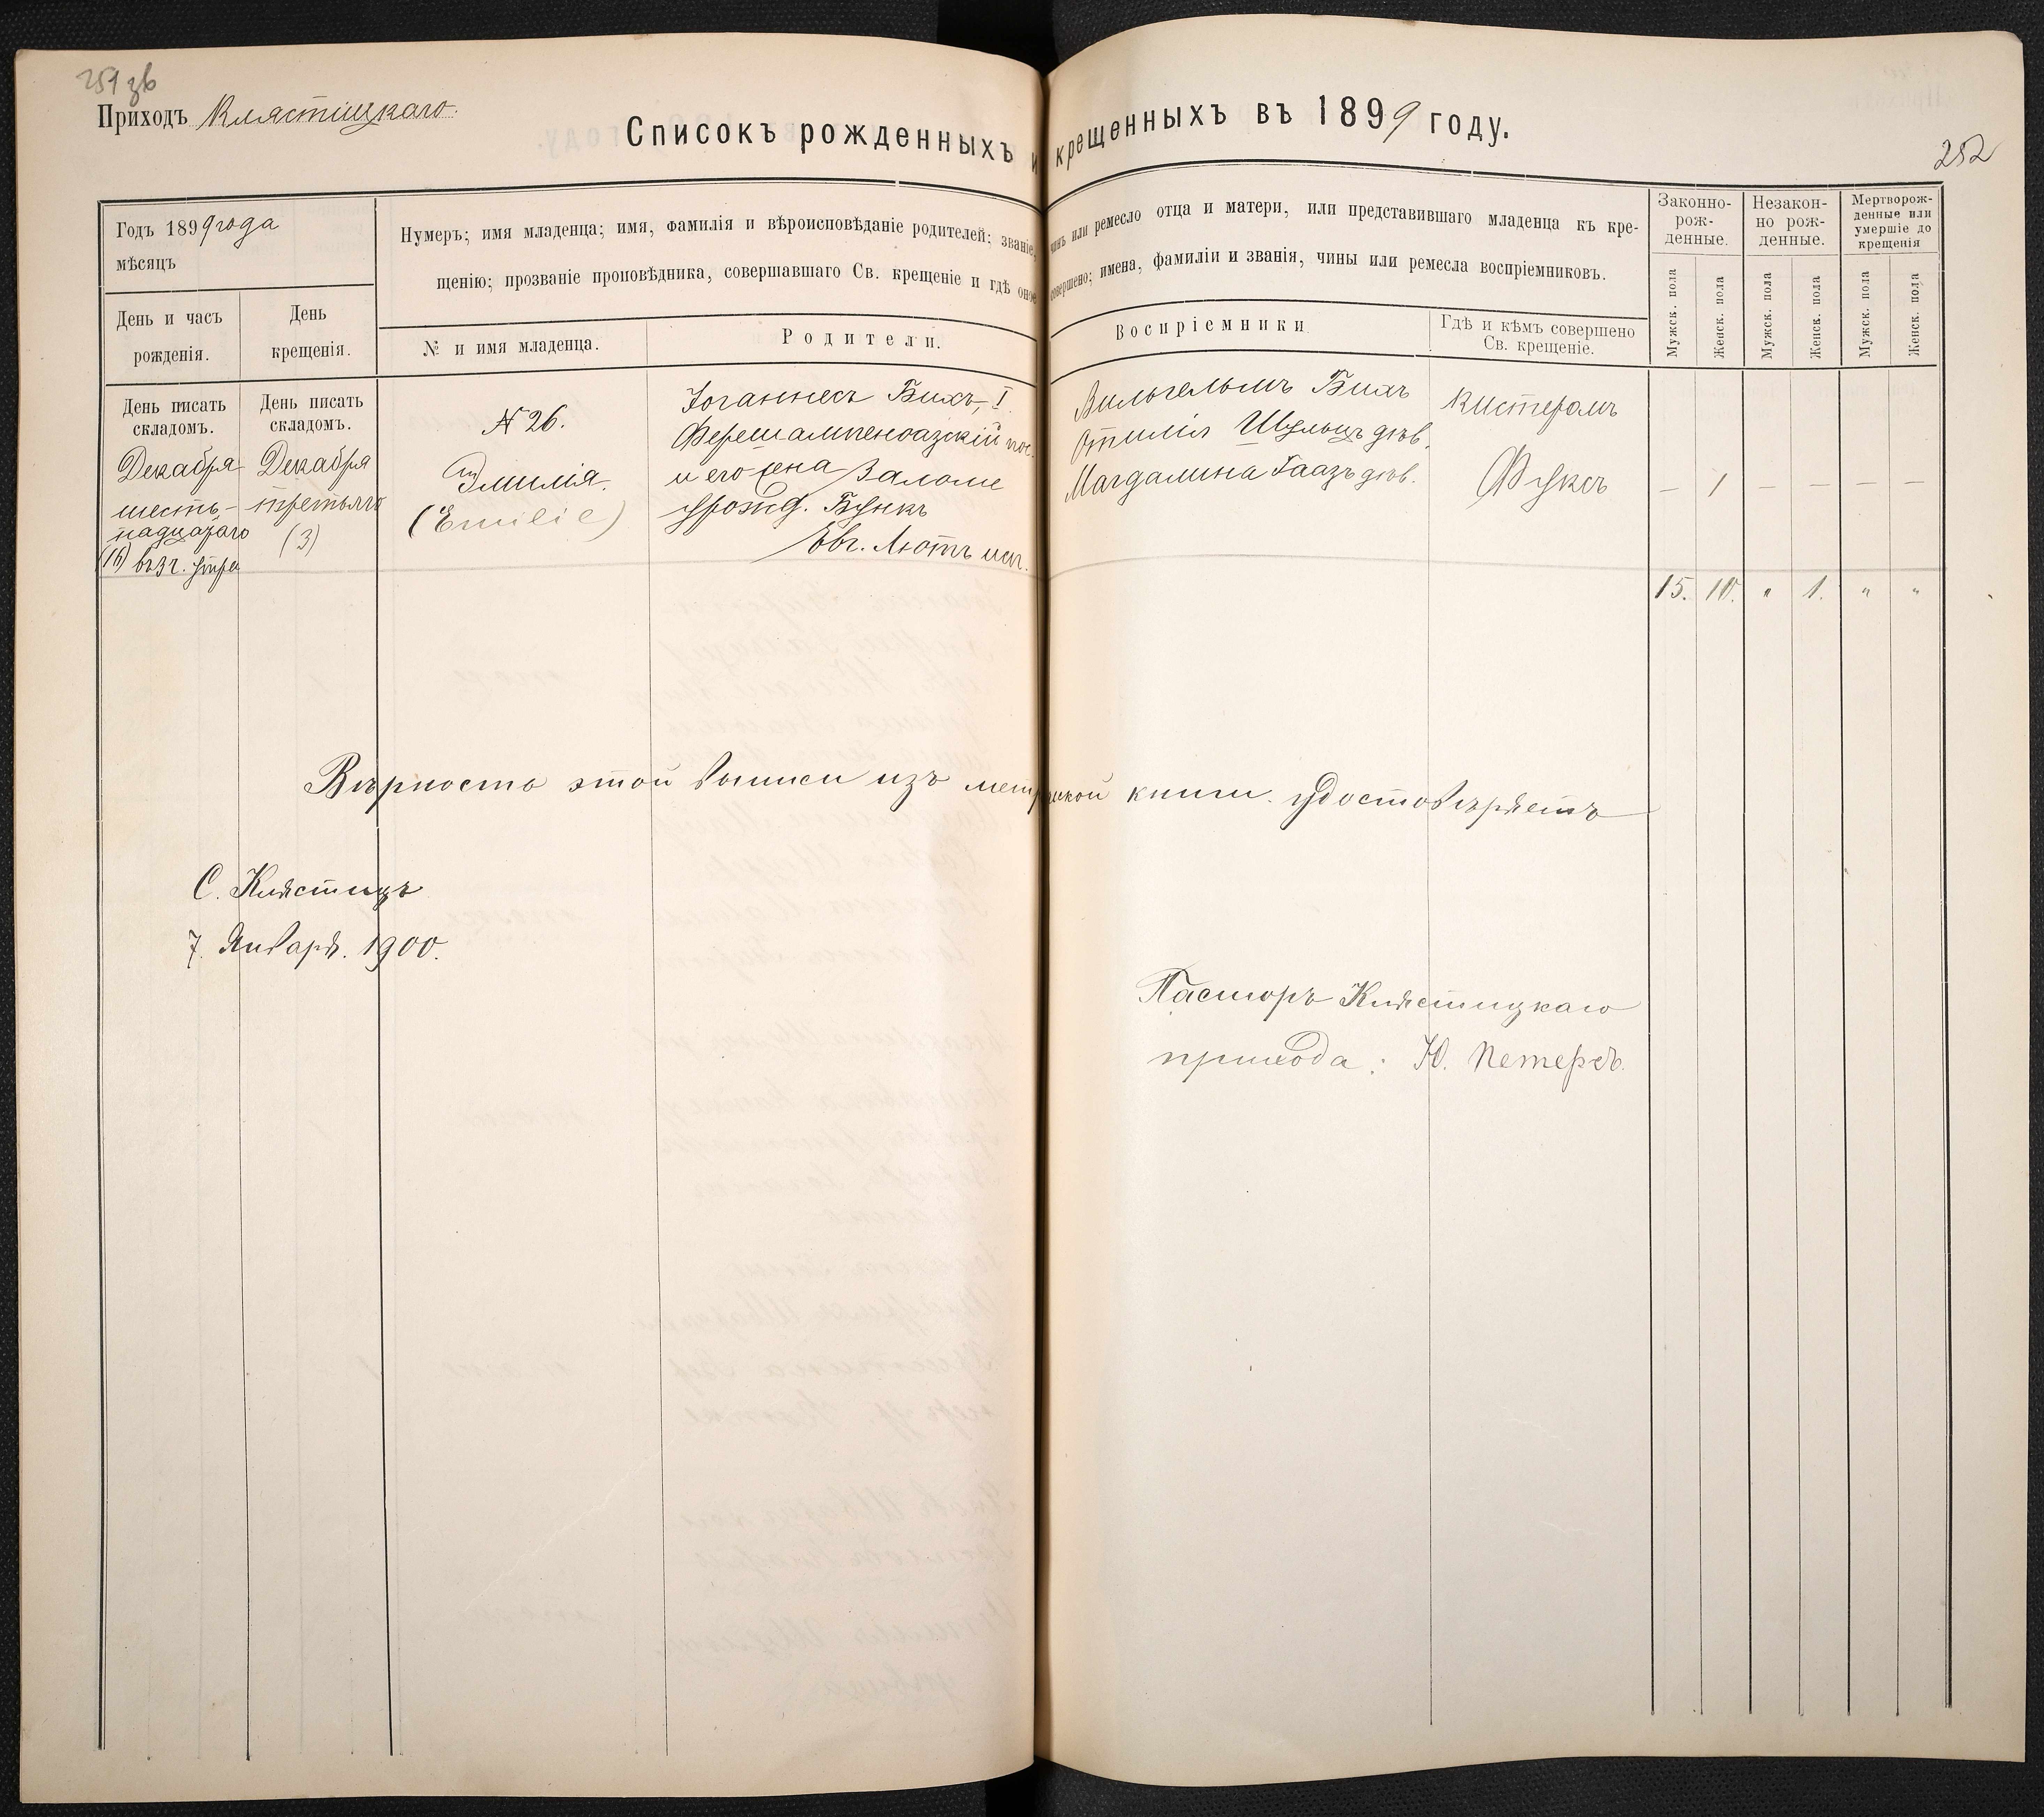 251 зв
Приходъ Клястицкаго.
Списокъ рожденныхъ и крещенныхъ въ 1899 году.
252
Годъ 1899 года
мѣсяцъ
День и часъ
рожденія.
День
крещенія.
Нумеръ; имя младенца; имя, фамилія и вѣроисповѣданіе родителей; званіе, чинъ или ремесло отца и матери, или представившаго младенца къ кре-
щенію; прозваніе проповѣдника, совершавшаго Св. крещеніе и гдѣ оное совершено; имена, фамиліи и званія, чины или ремесла воспріемниковъ.
№ и имя младенца.
Родители.
Воспріемники
Гдѣ и кѣмъ совершено
Св. крещеніе.
Законно-
рож-
денные.
Незакон-
но рож-
денные.
Мертворож-
денные или
умершіе до
крещенія
Мужск. пола
Женск. пола
Мужск. пола
Женск. пола
Мужск. пола
Женск. пола
День писать
складомъ.
Декабря
шесть-
надцатаго
(16) въ 3 ч. утра
День писать
складомъ.
Декабря
третьяго
(3)
№ 26.
Эмилія.
(Emilie)
Іоганнесъ Бихъ, I.
Фершампенуазскій пос.
и его жена Заломе
урожд. Бункъ
Евг. Лютъ исп.
Вильгельмъ Бихъ
Отилія Шульцъ дѣв.
Магдалина Гаазъ дѣв.
Кистеромъ
Фуксъ
— 1 — — — —
15. 10. " 1. " "
Вѣрность этой выписи изъ метрической книги удостовѣряетъ
С. Клястицъ
7. Января. 1900.
Пасторъ Клястицкаго
прихода: Ю. Петерсъ.